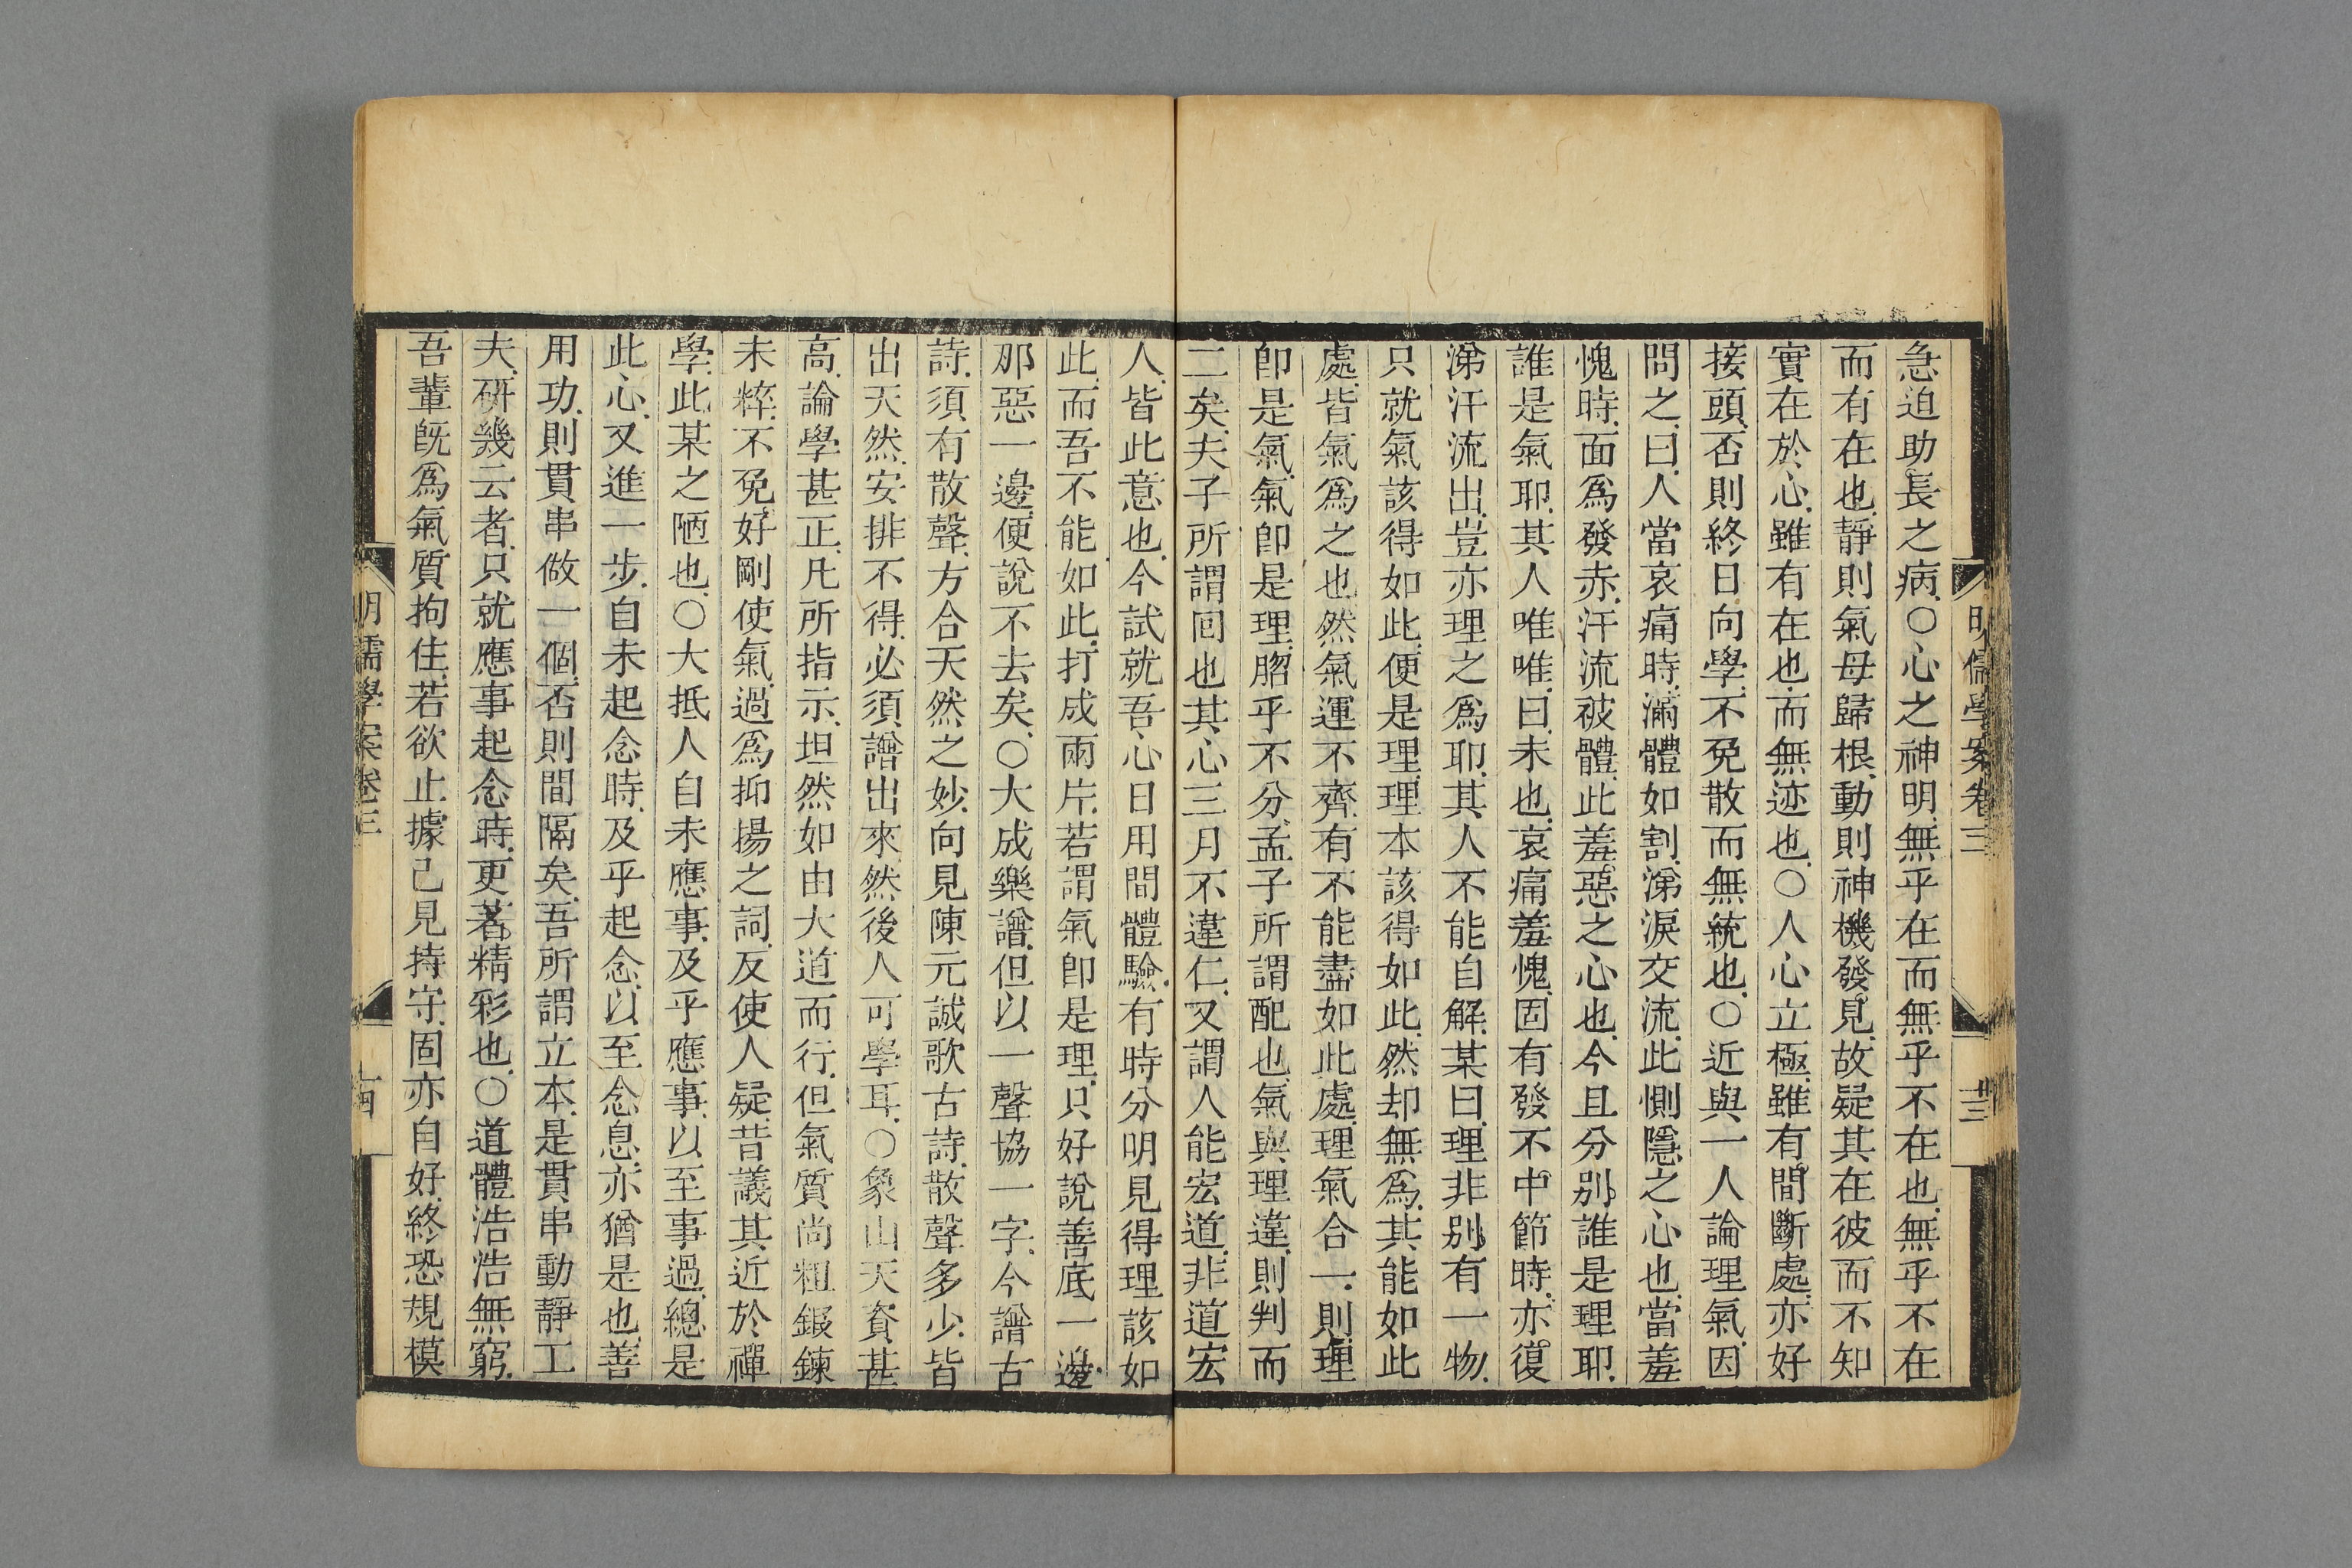 明儒學案卷三 廿三
急迫助長之病○心之神明無乎在而無乎不在也無乎不在
而有在也靜則氣母歸根動則神機發見故疑其在彼而不知
實在於心雖有在也而無迹也○人心立極雖有間斷處亦好
接頭否則終日向學不免散而無統也○近與一人論理氣因
問之曰人當哀痛時滿體如割涕淚交流此惻隱之心也當羞
愧時面爲發赤汗流被體此羞惡之心也今且分別誰是理耶
誰是氣耶其人唯唯曰未也哀痛羞愧固有發不中節時亦復
涕汗流出豈亦理之爲耶其人不能自解某曰理非別有一物
只就氣該得如此便是理理本該得如此然却無爲其能如此
處皆氣爲之也然氣運不齊有不能盡如此處理氣合一則理
卽是氣氣卽是理脗乎不分孟子所謂配也氣與理違則判而
二矣夫子所謂回也其心三月不違仁又謂人能宏道非道宏
人皆此意也今試就吾心日用間體驗有時分明見得理該如
此而吾不能如此打成兩片若謂氣卽是理只好說善底一邊
那惡一邊便說不去矣○大成樂譜但以一聲協一字今譜古
詩須有散聲方合天然之妙向見陳元誠歌古詩散聲多少皆
出天然安排不得必須譜出來然後人可學耳○象山天資甚
高論學甚正凡所指示坦然如由大道而行但氣質尚粗鍛鍊
未粹不免好剛使氣過爲抑揚之詞反使人疑昔議其近於禪
學此某之陋也○大抵人自未應事及乎應事以至事過總是
此心又進一步自未起念時及乎起念以至念息亦猶是也善
用功則貫串做一個否則間隔矣吾所謂立本是貫串動靜工
夫研幾云者只就應事起念時更著精彩也○道體浩浩無窮
吾輩旣爲氣質拘住若欲止據己見持守固亦自好終恐規模
明儒學案卷三